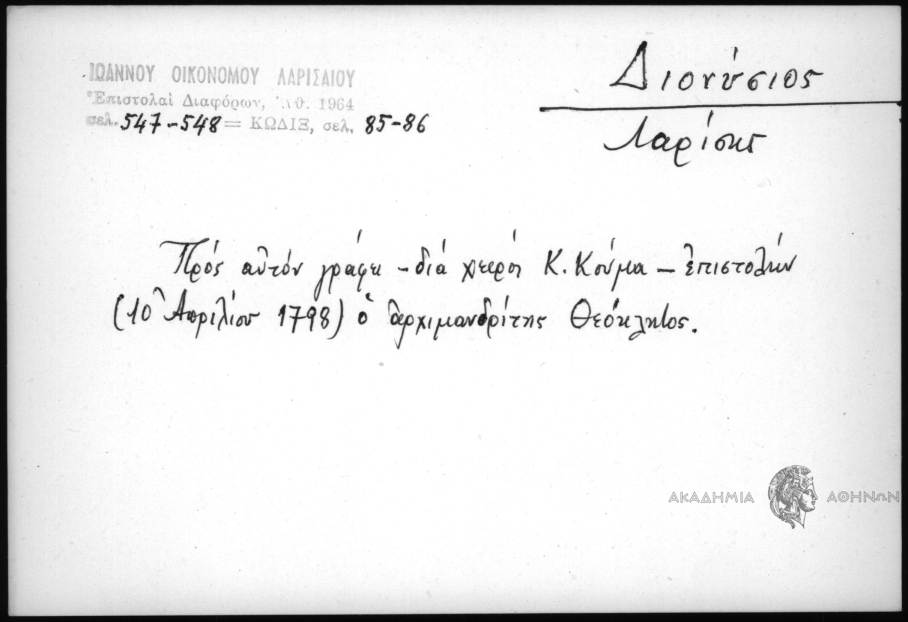 ΙΩΑΝΝΟΥ ΟΙΚΟΝΟΜΟΥ ΛΑΡΙΣΑΙΟΥ
Ἐπιστολαὶ Διαφόρων, Ἀθ. 1964
σελ. 547-548 = ΚΩΔΙΞ, σελ. 85-86
Διονύσιος
Λαρίσης
Πρός αὐτόν γράφει - διά χειρός Κ. Κούμα - ἐπιστολήν
(10 Ἀπριλίου 1798) ὁ ἀρχιμανδρίτης Θεόκλητος.
ΑΚΑΔΗΜΙΑ ΑΘΗΝΩΝ